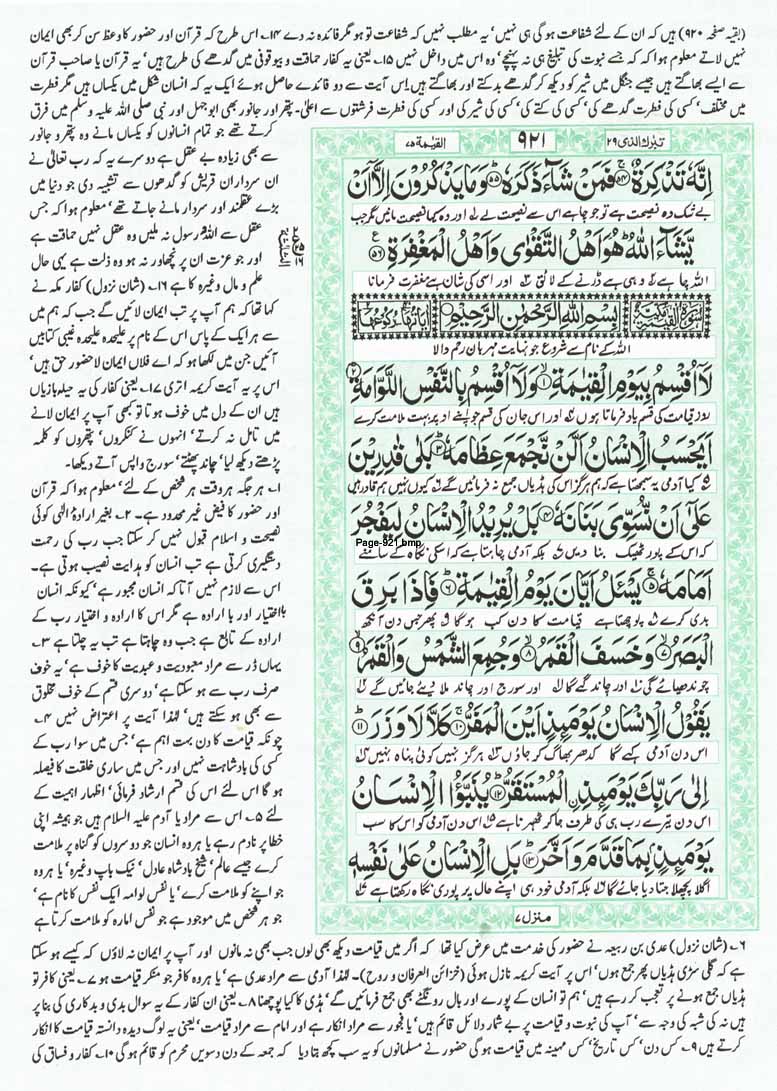 (بقیہ صفحہ ۹۲۰) ہیں کہ ان کے لئے شفاعت ہوگی ہی نہیں' یہ مطلب نہیں کہ شفاعت تو ہو مگر فائدہ نہ دے ۱۴۔ اس طرح کہ قرآن اور حضور کا وعظ سن کر بھی ایمان
نہیں لاتے معلوم ہوا کہ جسے نبوت کی تبلیغ ہی نہ پہنچے' وہ اس میں داخل نہیں ۱۵۔ یعنی یہ کفار حماقت و بیوقوفی میں گدھے کی طرح ہیں' یہ قرآن یا صاحب قرآن
سے ایسے بھاگتے ہیں جیسے جنگل میں شیر کو دیکھ کر گدھے بدکتے اور بھاگتے ہیں۔ اس آیت سے دو فائدے حاصل ہوئے ایک یہ کہ انسان شکل میں یکساں ہیں مگر فطرت
میں مختلف' کسی کی فطرت گدھے کی' کسی کی کتے کی' کسی کی شیر کی اور کسی کی فطرت فرشتوں سے اعلیٰ۔ پتھر اور جانور بھی ابوجہل اور نبی صلی اللہ علیہ وسلم میں فرق
کرتے تھے جو تمام انسانوں کو یکساں مانے وہ پتھر و جانور
سے بھی زیادہ بے عقل ہے دوسرے یہ کہ رب تعالیٰ نے
ان سرداران قریش کو گدھوں سے تشبیہ دی جو دنیا میں
بڑے عقلمند اور سردار مانے جاتے تھے' معلوم ہوا کہ جس
عقل سے اللہ رسول نہ ملیں وہ عقل نہیں حماقت ہے
اور جو عزت ان پر نچھاور نہ ہو وہ ذلت ہے یہی حال
علم و مال وغیرہ کا ہے ۱۶۔ (شان نزول) کفار مکہ نے
کہا تھا کہ ہم آپ پر تب ایمان لائیں گے جب کہ ہم میں
سے ہر ایک کے پاس اس کے نام پر علیحدہ علیحدہ غیبی کتابیں
آئیں جن میں لکھا ہو کہ اے فلاں ایمان لا حضور حق ہیں'
اس پر یہ آیت کریمہ اتری ۱۷۔ یعنی کفار کی یہ حیلہ بازیاں
ہیں ان کے دل میں خوف ہوتا تو کبھی آپ پر ایمان لانے
میں تامل نہ کرتے' انہوں نے کنکروں' پتھروں کو کلمہ
پڑھتے دیکھ لیا' چاند پھٹتے' سورج واپس آتے دیکھا۔
۱۔ ہر جگہ ہر وقت ہر شخص کے لئے' معلوم ہوا کہ قرآن
اور حضور کا فیض غیر محدود ہے۔ ۲۔ بغیر ارادۂ الٰہی کوئی
نصیحت و اسلام قبول نہیں کر سکتا جب رب کی رحمت
دستگیری کرتی ہے تب انسان کو ہدایت نصیب ہوتی ہے۔
اس سے لازم نہیں آتا کہ انسان مجبور ہے' کیونکہ انسان
بااختیار اور با ارادہ ہے مگر اس کا ارادہ و اختیار رب کے
ارادہ کے تابع ہے جب وہ چاہتا ہے تب یہ چلتا ہے ۳۔
یہاں ڈر سے مراد معبودیت و عبدیت کا خوف ہے' یہ خوف
صرف رب سے ہو سکتا ہے' دوسری قسم کے خوف مخلوق
سے بھی ہو سکتے ہیں' لہٰذا آیت پر اعتراض نہیں ۴۔
چونکہ قیامت کا دن بہت اہم ہے' جس میں سوا رب کے
کسی کی بادشاہت نہیں اور جس میں ساری خلقت کا فیصلہ
ہو گا اس لئے اس کی قسم ارشاد فرمائی' اظہار اہمیت کے
لئے ۵۔ اس سے مراد یا آدم علیہ السلام ہیں جو ہمیشہ اپنی
خطا پر نادم رہے یا ہر وہ انسان جو دوسروں کو گناہ پر ملامت
کرے جیسے عالم' شیخ' بادشاہ عادل' نیک باپ وغیرہ' یا ہر وہ
جو اپنے کو ملامت کرے' یا نفس لوامہ ایک نفس کا نام ہے'
جو ہر شخص میں موجود ہے جو نفس امارہ کو ملامت کرتا ہے
تبٰرك الذی ۲۹
۹۲۱
القیٰمة ۷۵
اِنَّهٗ تَذْكِرَةٌ ۚ﴿۵۴﴾ فَمَنْ شَآءَ ذَكَرَهٗ ؕ﴿۵۵﴾ وَمَا يَذْكُرُوْنَ اِلَّاۤ اَنْ
بے شک وہ نصیحت ہے تو جو چاہے اس سے نصیحت لے اور وہ کیا نصیحت مانیں مگر جب
يَّشَآءَ اللّٰهُ ؕ هُوَ اَهْلُ التَّقْوٰى وَاَهْلُ الْمَغْفِرَةِ ﴿۵۶﴾
اللہ چاہے وہی ہے ڈرنے کے لائق اور اسی کی شان ہے مغفرت فرمانا
سُوْرَةُ الْقِيٰمَةِ مَكِّيَّةٌ بِسْمِ اللّٰهِ الرَّحْمٰنِ الرَّحِيْمِ
اللہ کے نام سے شروع جو نہایت مہربان رحم والا
لَاۤ اُقْسِمُ بِيَوْمِ الْقِيٰمَةِ ۙ﴿۱﴾ وَلَاۤ اُقْسِمُ بِالنَّفْسِ اللَّوَّامَةِ ؕ﴿۲﴾
روز قیامت کی قسم یاد فرماتا ہوں اور اس جان کی قسم جو اپنے اوپر بہت ملامت کرے
اَيَحْسَبُ الْاِنْسَانُ اَلَّنْ نَّجْمَعَ عِظَامَهٗ ؕ﴿۳﴾ بَلٰى قٰدِرِيْنَ
کیا آدمی یہ سمجھتا ہے کہ ہم ہرگز اس کی ہڈیاں جمع نہ فرمائیں گے کیوں نہیں ہم قادر ہیں
عَلٰۤى اَنْ نُّسَوِّيَ بَنَانَهٗ ﴿۴﴾ بَلْ يُرِيْدُ الْاِنْسَانُ لِيَفْجُرَ
Page-921.bmp
کہ اس کے پور ٹھیک بنا دیں بلکہ آدمی چاہتا ہے کہ اسکی نگاہ کے سامنے
اَمَامَهٗ ۚ﴿۵﴾ يَسْـَٔلُ اَيَّانَ يَوْمُ الْقِيٰمَةِ ؕ﴿۶﴾ فَاِذَا بَرِقَ
بدی کرے پوچھتا ہے قیامت کا دن کب ہوگا پھر جس دن آنکھ
الْبَصَرُ ۙ﴿۷﴾ وَخَسَفَ الْقَمَرُ ۙ﴿۸﴾ وَجُمِعَ الشَّمْسُ وَالْقَمَرُ ۙ﴿۹﴾
چوندھیائے گی اور چاند گہے گا اور سورج اور چاند ملا دیئے جائیں گے
يَقُوْلُ الْاِنْسَانُ يَوْمَئِذٍ اَيْنَ الْمَفَرُّ ۚ﴿۱۰﴾ كَلَّا لَا وَزَرَ ؕ﴿۱۱﴾
اس دن آدمی کہے گا کدھر بھاگ کر جاؤں ہرگز نہیں کوئی پناہ نہیں
اِلٰى رَبِّكَ يَوْمَئِذِ ۨالْمُسْتَقَرُّ ؕ﴿۱۲﴾ يُنَبَّؤُا الْاِنْسَانُ
اس دن تیرے رب ہی کی طرف جا کر ٹھہرنا ہے اس دن آدمی کو اس کا سب
يَوْمَئِذٍۭ بِمَا قَدَّمَ وَاَخَّرَ ؕ﴿۱۳﴾ بَلِ الْاِنْسَانُ عَلٰى نَفْسِهٖ
اگلا پچھلا جتا دیا جائے گا بلکہ آدمی خود ہی اپنے حال پر پوری نگاہ رکھتا ہے
منزل ۷
۶۔ (شان نزول) عدی بن ربیعہ نے حضور کی خدمت میں عرض کیا تھا کہ اگر میں قیامت دیکھ بھی لوں جب بھی نہ مانوں اور آپ پر ایمان نہ لاؤں کہ کیسے ہو سکتا
ہے کہ گلی سڑی ہڈیاں پھر جمع ہوں' اس پر آیت کریمہ نازل ہوئی (خزائن العرفان و روح)۔ لہٰذا آدمی سے مراد عدی ہے' یا ہر وہ کافر جو منکر قیامت ہو ۷۔ یعنی کافر تو
ہڈیاں جمع ہونے پر تعجب کر رہے ہیں' ہم تو انسان کے پورے اور بال رونگٹے بھی جمع فرمائیں گے' ہڈی کا کیا پوچھنا ۸۔ یعنی ان کفار کے یہ سوال بدی و بدکاری کی بنا پر
ہیں نہ کسی شبہ کی وجہ سے' آپ کی نبوت و قیامت پر بے شمار دلائل قائم ہیں' یا فجور سے مراد انکار ہے اور امام سے مراد قیامت' یعنی یہ لوگ دیدہ دانستہ قیامت کا انکار
کرتے ہیں ۹۔ کس دن' کس تاریخ' کس مہینہ میں قیامت ہو گی حضور نے مسلمانوں کو یہ سب کچھ بتا دیا کہ جمعہ کے دن دسویں محرم کو قائم ہو گی ۱۰۔ کفار و فساق کی